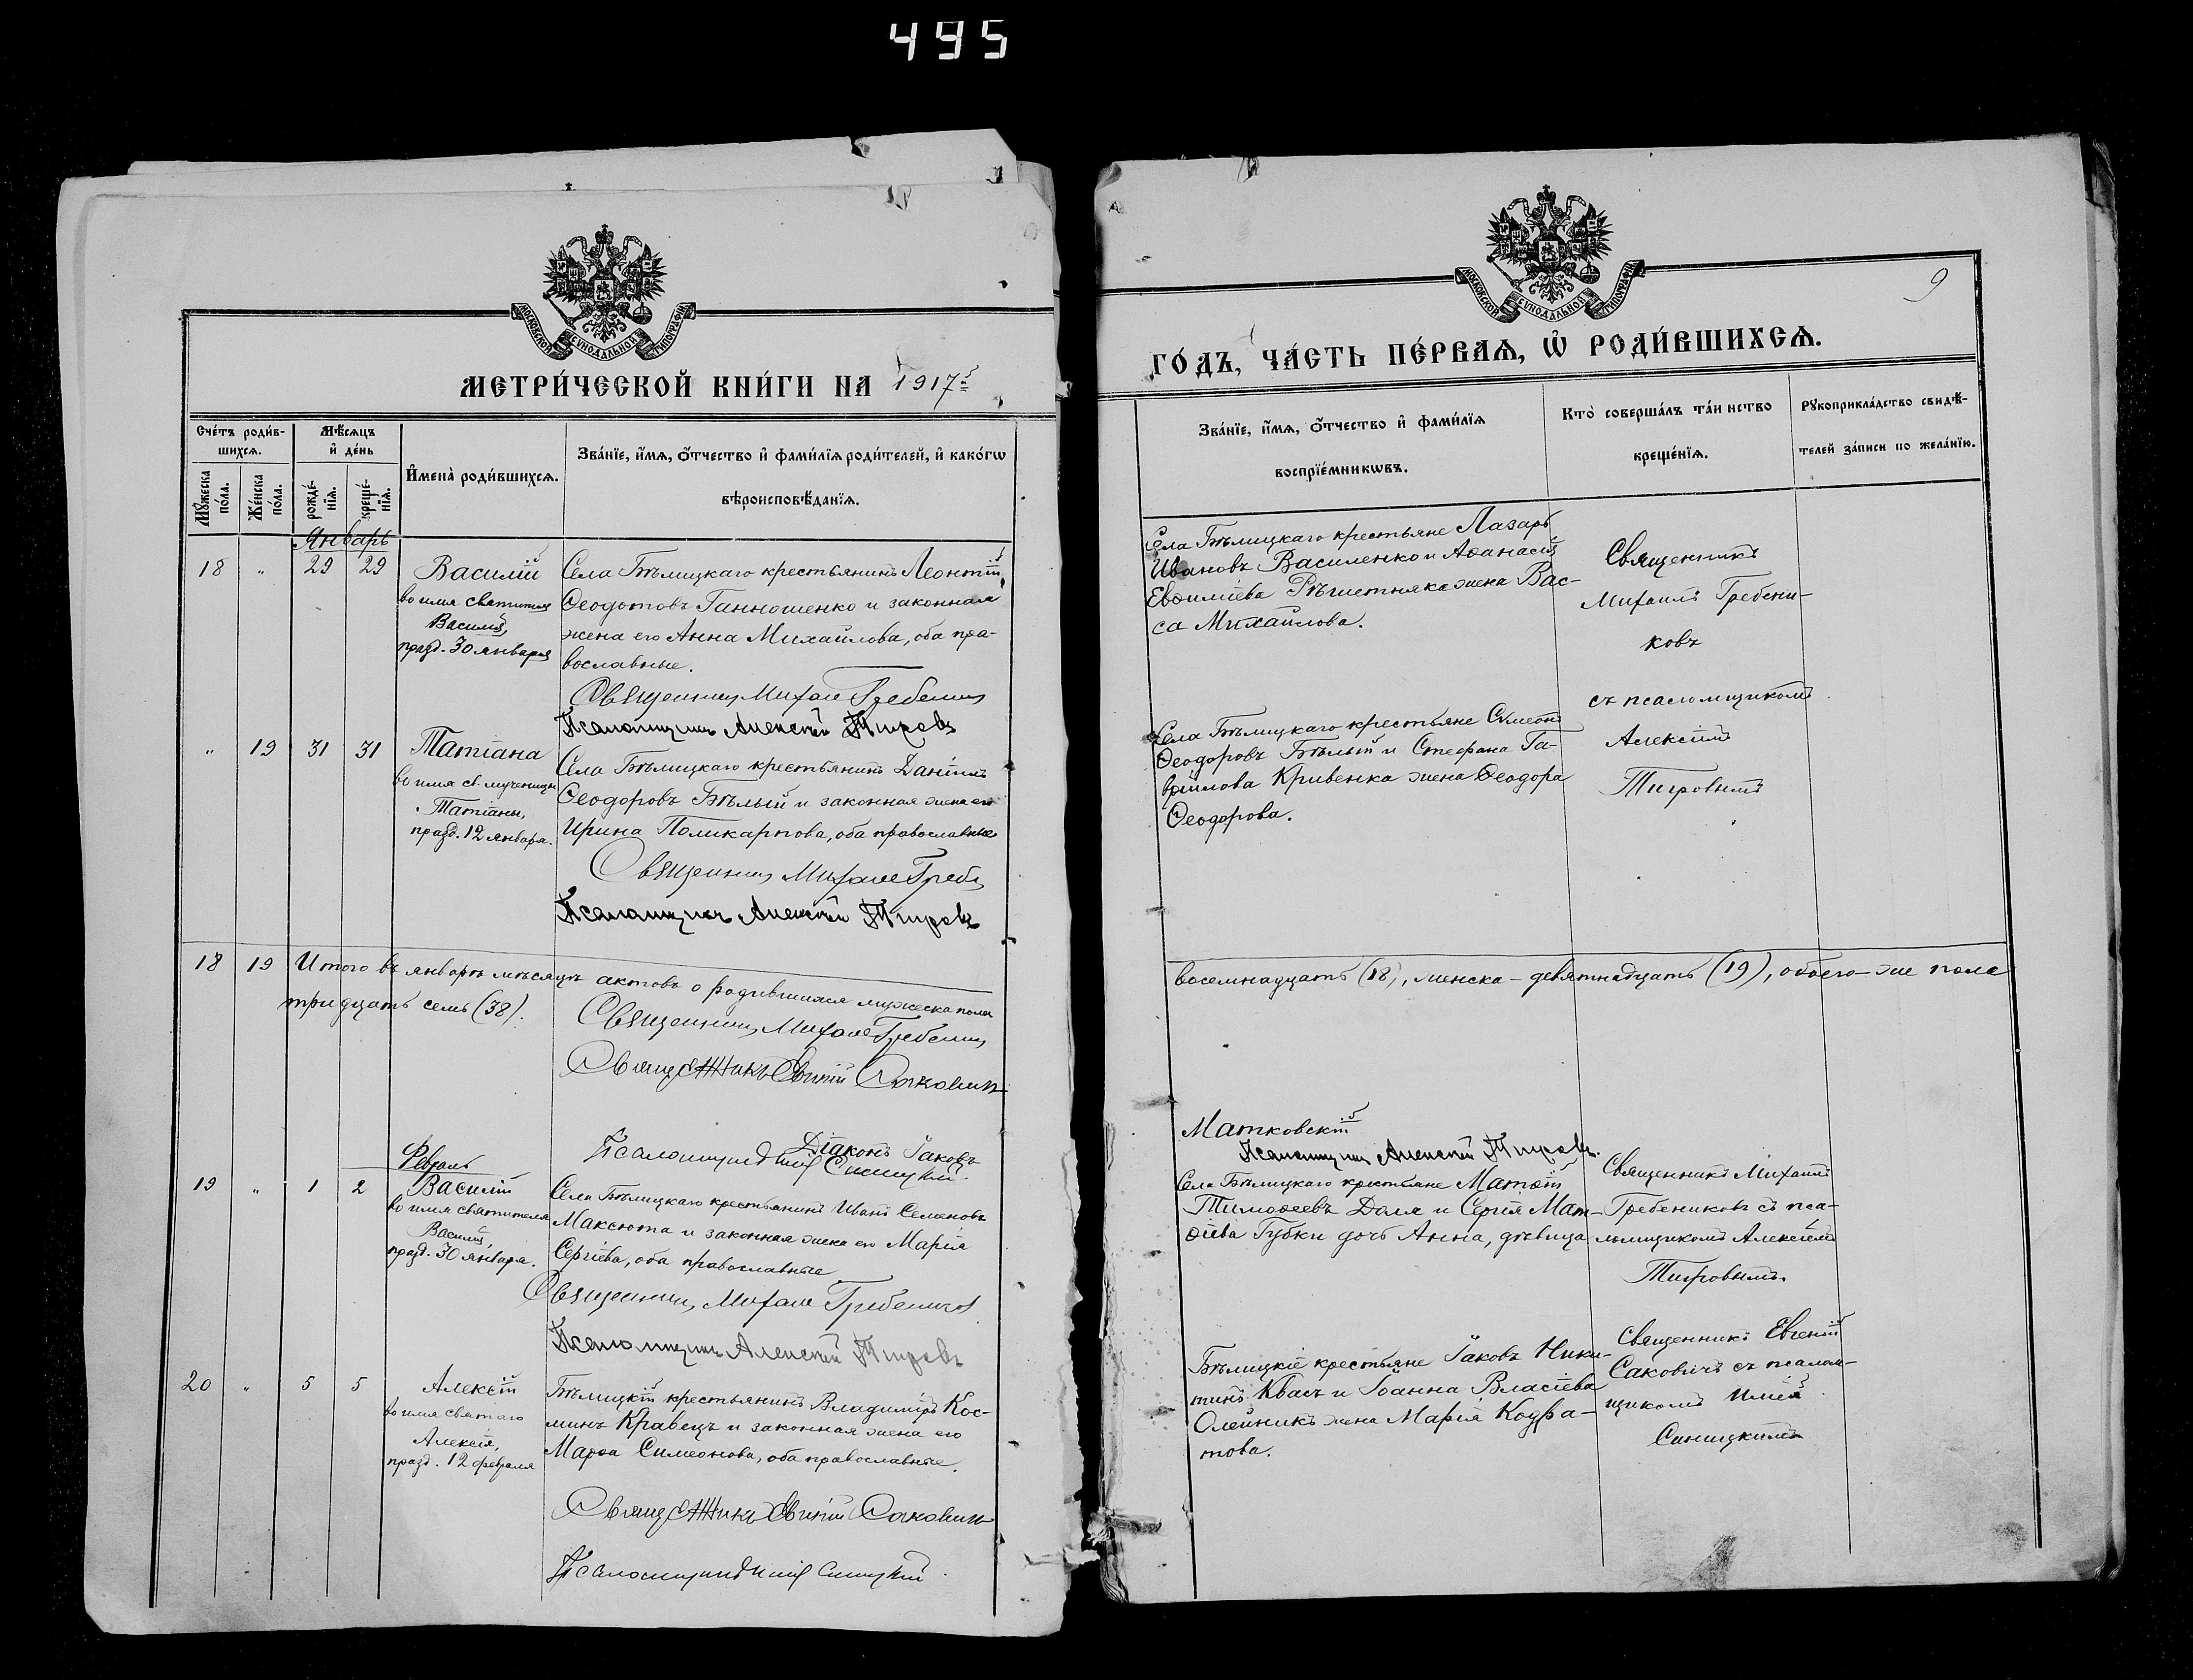 495
МОСКОВСКОЙ СѴНОДАЛЬНОЙ ТИПОГРАФІИ
МЕТРИ́ЧЕСКОЙ КНИ́ГИ НА 1917й
Сче́тъ роди́в-
шихсѧ.
Мѣ́сѧцъ
и҆ де́нь
Мꙋ́жеска
по́ла.
Же́нска
по́ла.
рожде́-
нїѧ.
креще́-
нїѧ.
И҆мена̀ роди́вшихсѧ.
Зва́нїе, и҆́мѧ, ѻ҆́тчество и҆ фами́лїѧ роди́телей, и҆ како́гѡ
вѣроисповѣ́данїѧ.
Январь
18 " 29 29 Василій
во имя святителя
Василія,
празд. 30 января
Села Бѣлицкаго крестьянинъ Леонтій
Ѳеодотовъ Ганношенко и законная
жена его Анна Михайлова, оба пра-
вославные.
Священникъ Михаил Гребеник
Псаломщикъ Алексѣй Тигровъ
" 19 31 31 Татіана
во имя св. мученицы
Татіаны,
празд. 12 января.
Села Бѣлицкаго крестьянинъ Даніилъ
Ѳеодоровъ Бѣлый и законная жена его
Ирина Поликарпова, оба православные
Священникъ Михаил Греб
Псаломщикъ Алексѣй Тигровъ
18 19 Итого въ январѣ мѣсяцѣ актовъ о родившихся мужеска пола
тридцать семь (38).
Священникъ Михаил Гребеник
Священникъ Евгеній Сакович
Діаконъ Іаковъ
Псаломщикъ Синицкій
Февраль
19 " 1 2 Василій
во имя святителя
Василія,
празд. 30 января.
Села Бѣлицкаго крестьянинъ Иванъ Семеновъ
Максюта и законная жена его Марія
Сергіева, оба православные
Священникъ Михаил Гребеников
Псаломщикъ Алексѣй Тигровъ
20 " 5 5 Алексій
во имя святаго
Алексія,
празд. 12 февраля
Бѣлицкій крестьянинъ Владиміръ Кос-
минъ Кравецъ и законная жена его
Марѳа Симеонова, оба православные.
Священникъ Евгеній Сакович
Псаломщикъ Синицкій
9
МОСКОВСКОЙ СѴНОДАЛЬНОЙ ТИПОГРАФІИ
ГО́ДЪ, ЧА́СТЬ ПЕ́РВАѦ, Ѡ҆ РОДИ́ВШИХСѦ.
Зва́нїе, и҆́мѧ, ѻ҆́тчество и҆ фами́лїѧ
воспрїе́мникѡвъ.
Кто̀ соверша́лъ та́инство
креще́нїѧ.
Рꙋкоприкла́дство свидѣ́-
телей за́писи по жела́нїю.
Села Бѣлицкаго крестьяне Лазарь
Ивановъ Василенко и Аѳанасія
Евѳиміева Рѣшетняка жена Вас-
са Михайлова.
Священникъ
Михаилъ Гребени-
ковъ
съ псаломщикомъ
Алексіемъ
Тигровымъ
Села Бѣлицкаго крестьяне Симеонъ
Ѳеодоровъ Бѣлый и Стефана Га-
вріилова Кривенка жена Ѳеодора
Ѳеодорова.
восемнадцать (18), женска - девятнадцать (19), обоего-же пола
Матковскій
Псаломщикъ Алексѣй Тигровъ.
Села Бѣлицкаго крестьяне Матѳій
Тимоѳеевъ Даля и Сергія Мат-
ѳіева Губки дочь Анна, дѣвица
Священникъ Михаилъ
Гребениковъ съ пса-
льмщикомъ Алексіемъ
Тигровымъ.
Бѣлицкіе крестьяне Іаковъ Ники-
тинъ Квасъ и Іоанна Власіева
Олейникъ жена Марія Кодра-
това.
Священникъ Евгеній
Саковичъ съ псалом-
щикомъ Иліей
Синицкимъ